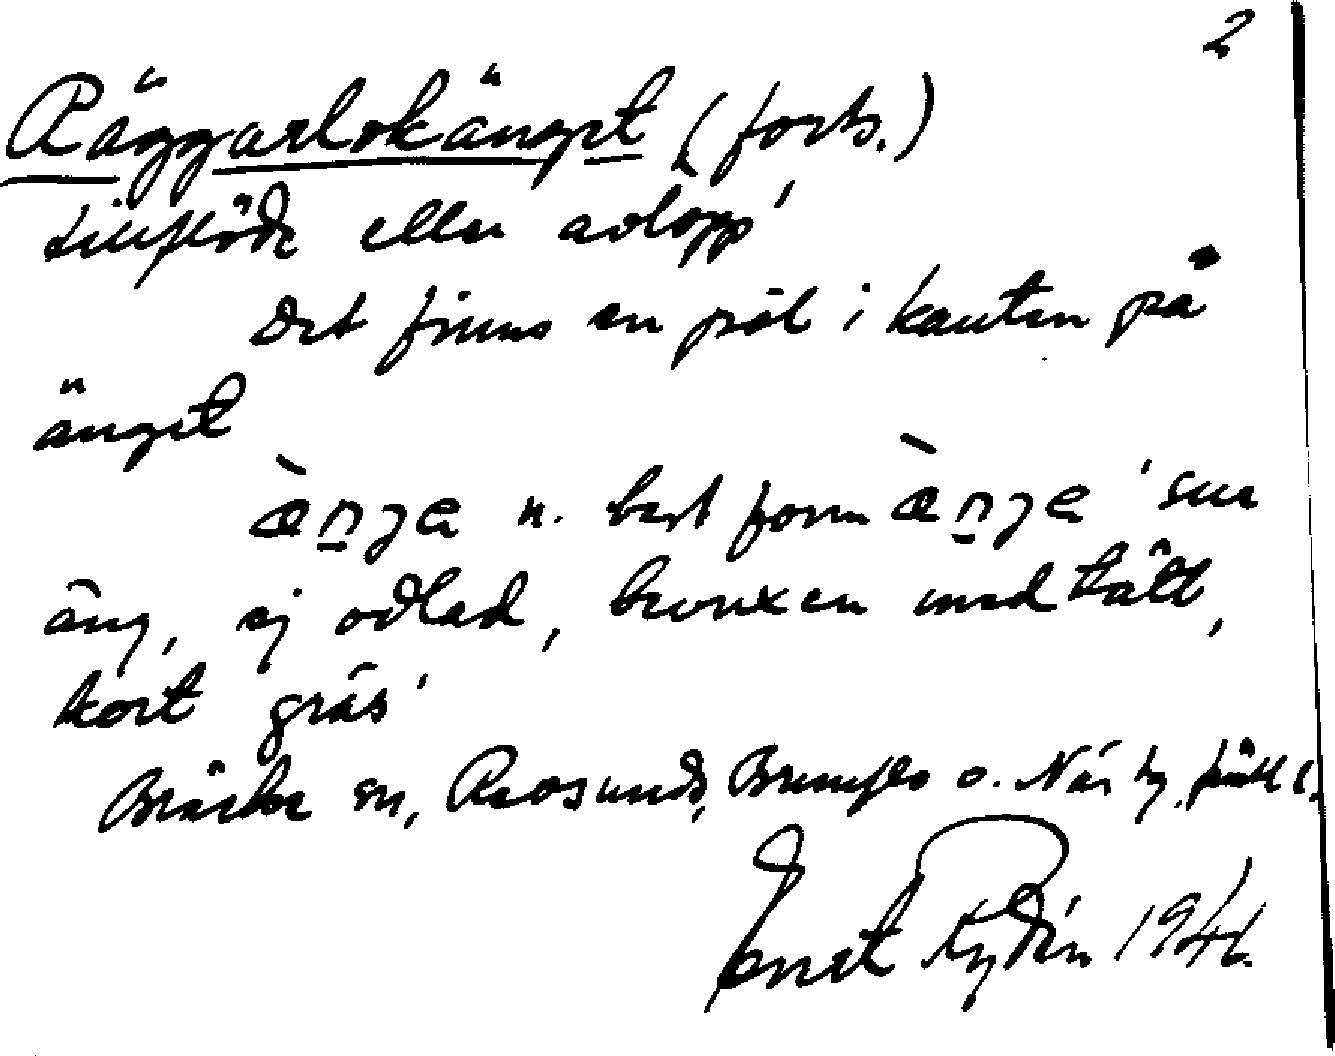 2
Räggarlokänget (forts.)
tillflöde eller avlopp'
Det finns en pöl i kanten på
änget
ænja n. best form ænja 'sur
äng, ej odlad, bevuxen med tätt,
kort gräs'
Bräcke sn, Revsunds, Brunflo o. Näs tg,
Ernst Rydén 1941.